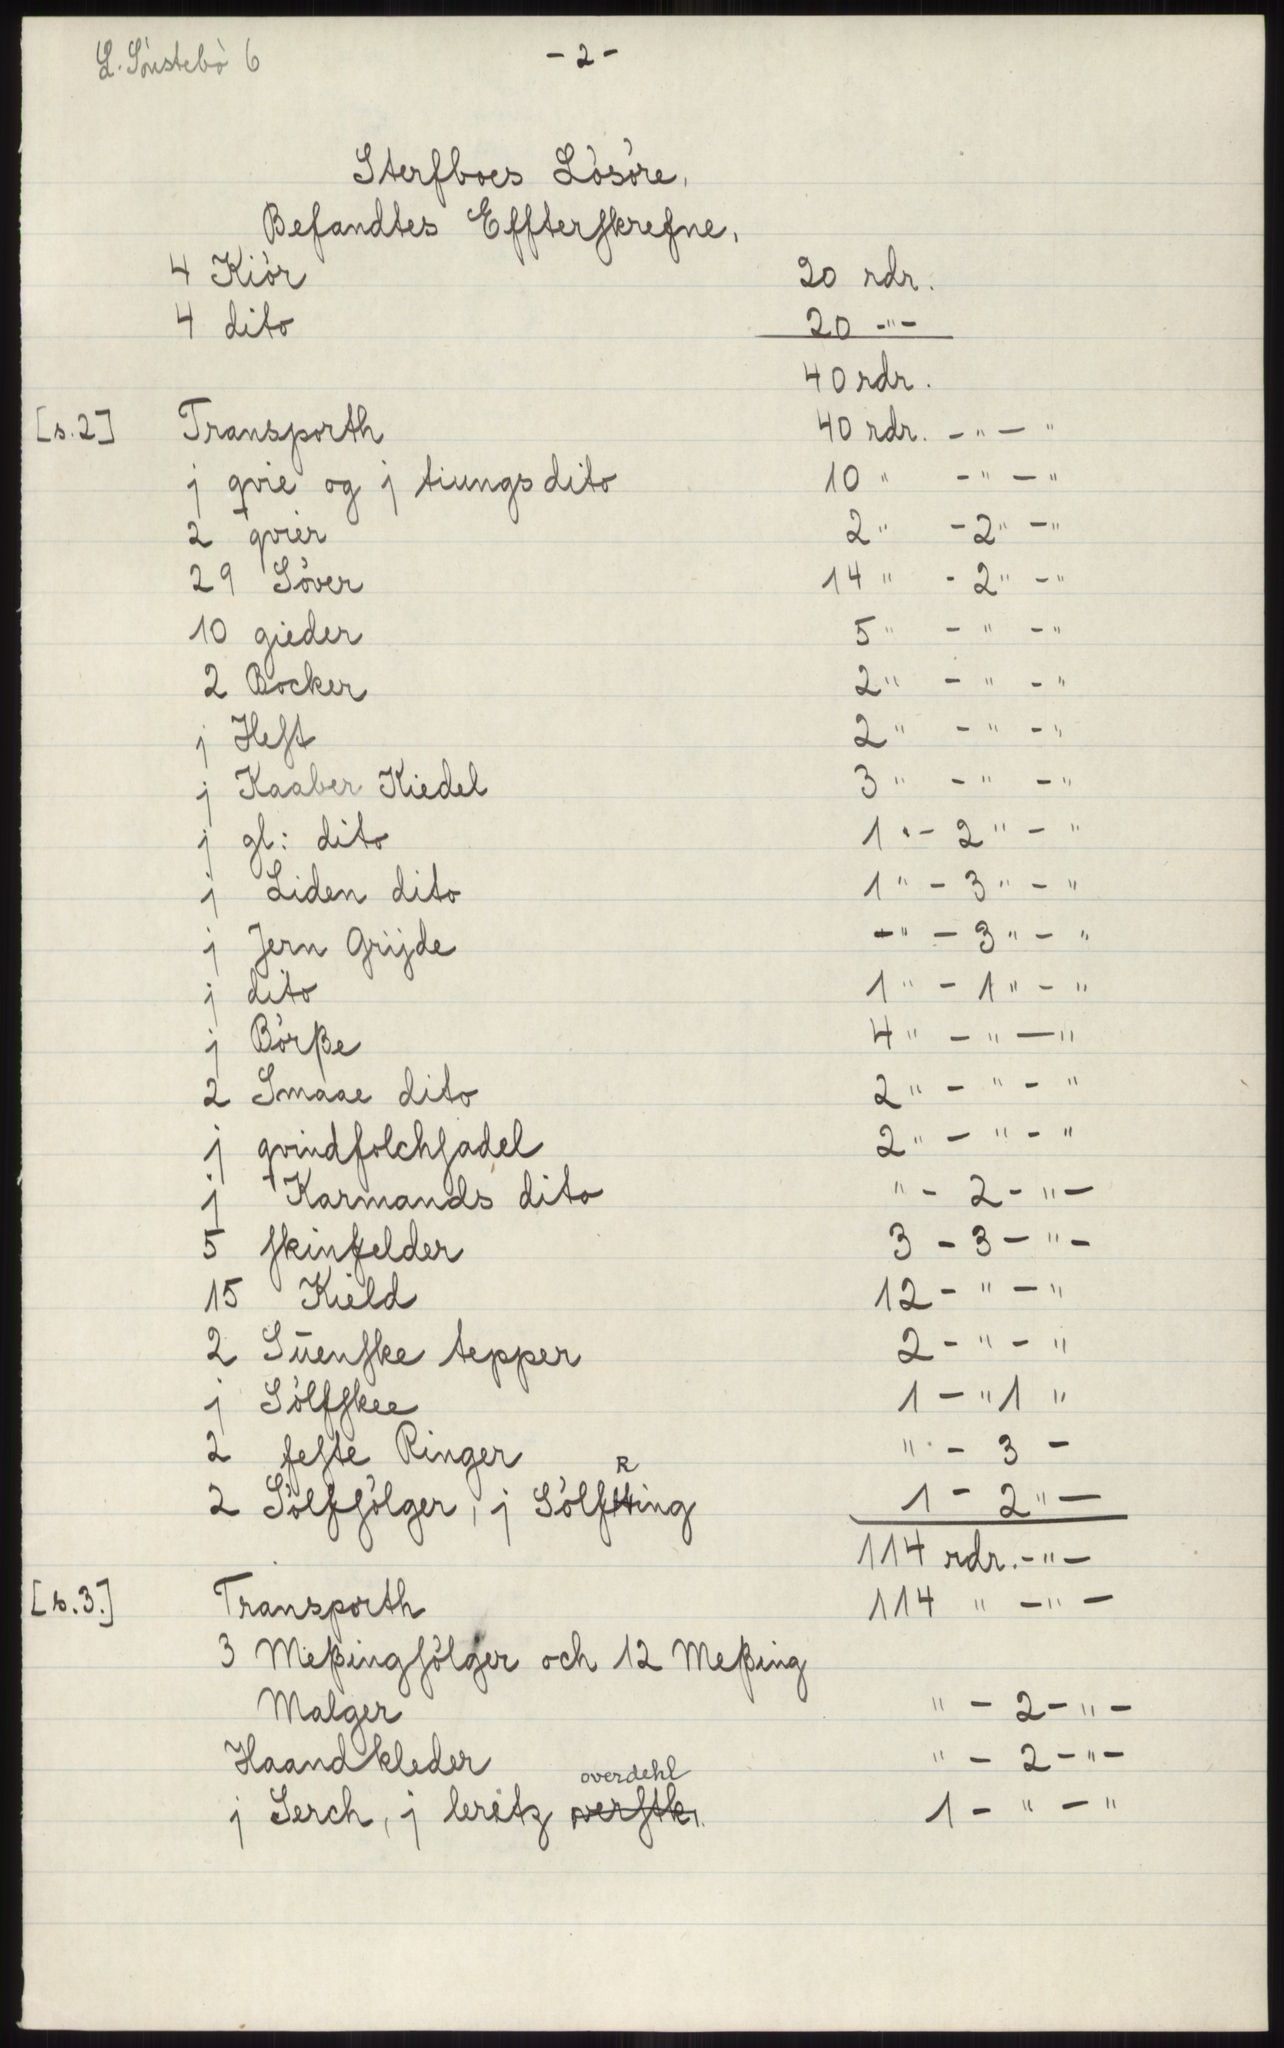 L. Sönstebö 6
- 2 -
Sterfboes Lösöre,
Befandtes Effterskrefne,
4 Kiör 20 rdr.
4 dito 20 -"-
40 rdr.
[s.2] Transporth 40 rdr. - " - "
j qvie og j tiungsdito 10 " - " - "
2 qvier 2 " - 2 " - "
29 Söver 14 " - 2 " - "
10 gieder 5 " - " - "
2 Bocker 2 " - " - "
j Hest 2 " - " - "
j Kaaber Kiedel 3 " - " - "
j gl: dito 1 " - 2 " - "
j Liden dito 1 " - 3 " - "
j Jern Grijde - " - 3 " - "
j dito 1 " - 1 " - "
j Börße 4 " - " - "
2 Smaae dito 2 " - " - "
j qvindfolchsadel 2 " - " - "
j Karmands dito " - 2 - " -
5 skinfelder 3 - 3 - " -
15 Kield 12 - " - "
2 Süenske tepper 2 - " - "
j Sölfskee 1 - " 1 "
2 feste Ringer " - 3 -
R
2 Sölfsölger, j Sölfting 1 - 2 " -
114 rdr. - " -
[s.3.] Transporth 114 " - " -
3 Meßingsölger och 12 Meßing
Malger " - 2 - " -
Haandkleder " - 2 - " -
overdehl
j Serch, j leritz overstk. 1 - " - "